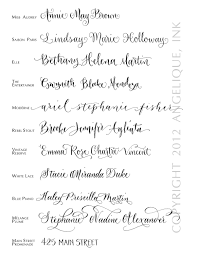 Miss Audrey Annie May Brown
Saison Paris Lindsay Marie Holloway
Elle Bethany Helena Martin
The Entertainer Gwyneth Blake Mendoza
Modosus ariel stephanie fisher
Rebel Stout Brooke Jennifer Agliata
Vintage Reserve Emma Rose Chartre Vincent
White Lace Stacie Miranda Duke
Blue Piano Haley Priscilla Martin
Mélange Plume Stephanie Nadene Alexander
Main Street Promenade 425 MAIN STREET
COPYRIGHT 2012 ANGELIQUE, INK